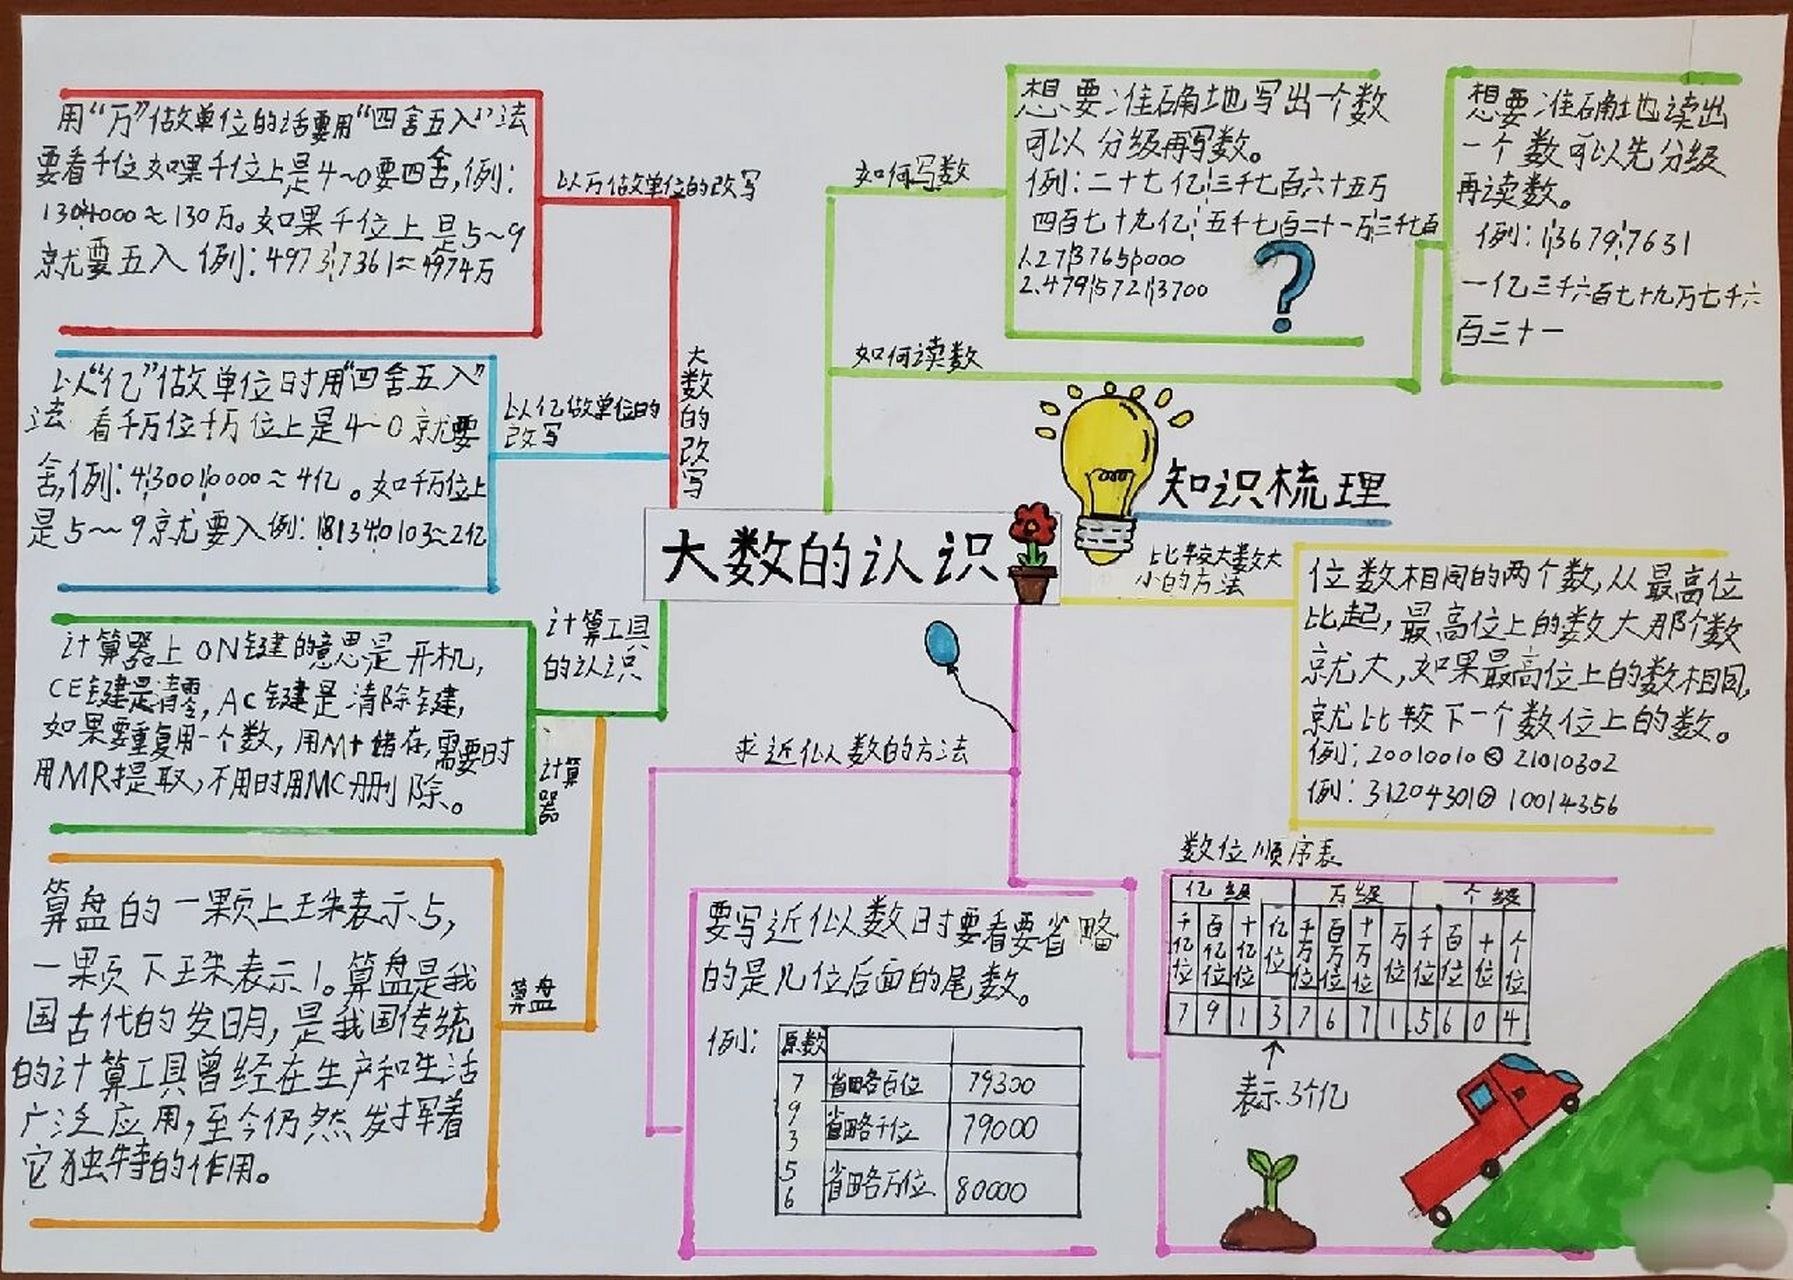 大数的认识
知识梳理
大数的改写
以万做单位的改写
用“万”做单位的话要用“四舍五入”法
要看千位如果千位上是4~0要四舍,例:
1304000≈130万。如果千位上是5~9
就要五入 例:49737361≈4974万
以亿做单位的
改写
以“亿”做单位时用“四舍五入”
法 看千万位千万位上是4~0就要
舍,例:430010000≈4亿。如千万位上
是5~9就要入例:181340103≈2亿
计算工具
的认识
计算
器
计算器上ON键的意思是开机,
CE键是清零,AC键是清除键,
如果要重复用一个数,用M+储存,需要时
用MR提取,不用时用MC删除。
算盘
算盘的一颗上珠表示5,
一颗下珠表示1。算盘是我
国古代的发明,是我国传统
的计算工具曾经在生产和生活
广泛应用,至今仍然发挥着
它独特的作用。
如何写数
想要准确地写出一个数
可以分级再写数。
例:二十七亿三千七百六十五万
四百七十九亿五千七百二十一万三千七百
1.2737650000
2.47957213700
如何读数
想要准确地读出
一个数可以先分级
再读数。
例:136797631
一亿三千六百七十九万七千六
百三十一
比较大数大
小的方法
位数相同的两个数,从最高位
比起,最高位上的数大那个数
就大,如果最高位上的数相同,
就比较下一个数位上的数。
例:20010010<21010302
例:31204301>10014356
求近似数的方法
要写近似数时要看要省略
的是几位后面的尾数。
例:
原数
79356
省略百位 79300
省略千位 79000
省略万位 80000
数位顺序表
亿级 万级 个级
千亿位 百亿位 十亿位 亿位 千万位 百万位 十万位 万位 千位 百位 十位 个位
7 9 1 3 7 6 7 1 5 6 0 4
表示3个亿